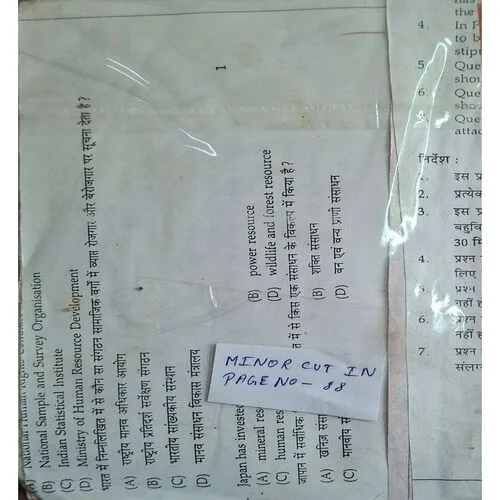 (A) National Human Rights
(B) National Sample and Survey Organisation
(C) Indian Statistical Institute
(D) Ministry of Human Resource Development
भारत में निम्नलिखित में से कौन सा संगठन सामाजिक वर्गों में व्याप्त रोजगार और बेरोजगार पर सूचना देता है ?
(A) राष्ट्रीय मानव अधिकार आयोग
(B) राष्ट्रीय प्रतिदर्श सर्वेक्षण संगठन
(C) भारतीय सांख्यकीय संस्थान
(D) मानव संसाधन विकास मंत्रालय
1
Japan has invested
(A) mineral res
(B) power resource
(C) human res
(D) wildlife and forest resource
जापान में सर्वाधिक
त में से किस एक संसाधन के विकल्प में किया है ?
(A) खनिज संस
(B) शक्ति संसाधन
(C) मानवीय सं
(D) वन एवं वन्य प्राणी संसाधन
MINOR CUT IN
PAGE NO - 88
the
4. In F
to b
stipu
5 Que
shou
6 Que
shou
Que
attac
निर्देश :
1. इस प्र
2. प्रत्येक
3. इस प्र
बहुवि
30 मि
4. प्रश्न
लिए
5. प्रश्न
नहीं ह
6. प्रश्न
नहीं ह
7. प्रश्न
संलग